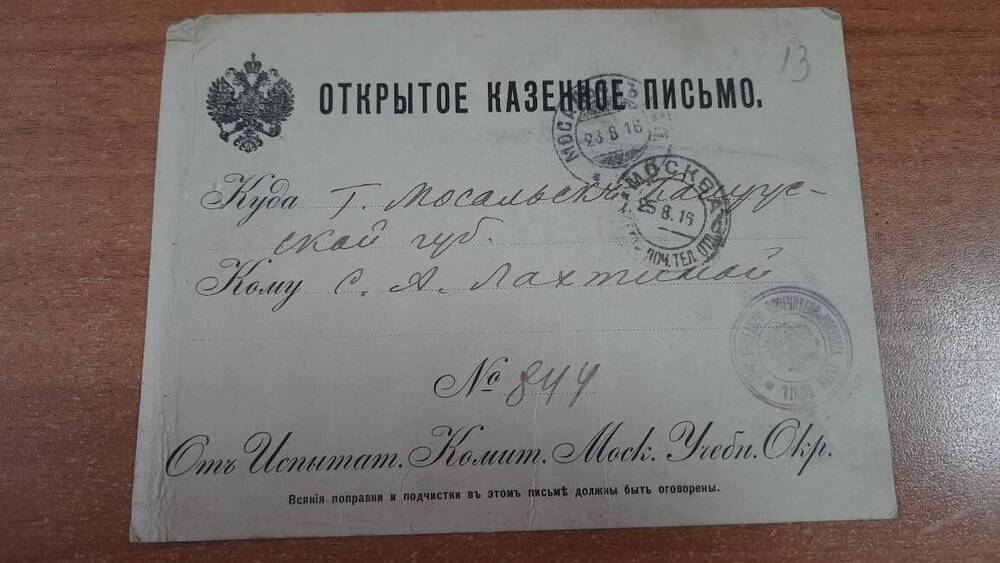 13
ОТКРЫТОЕ КАЗЕННОЕ ПИСЬМО.
МОСАЛЬСКЪ
23 8 16
МОСКВА
25.8.16
ПОЧ. ТЕЛ. ОТД.
Куда Г. Мосальскъ Калуж-
ской губ.
Кому С. А. Лахтиной
№ 844
Отъ Испытат. Комит. Моск. Учебн. Окр.
Всякія поправки и подчистки въ этомъ письмѣ должны быть оговорены.